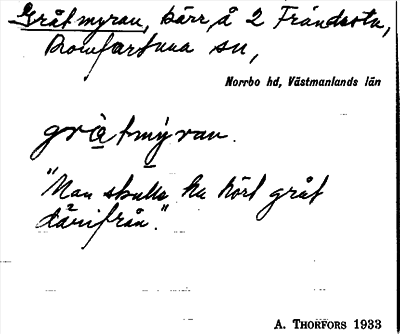 Gråtmyran, kärr å 2 Frändesta,
Romfartuna sn,
Norrbo hd, Västmanlands län
gråtmyran.
"Man skulle ha hört gråt
därifrån."
A. THORFORS 1933